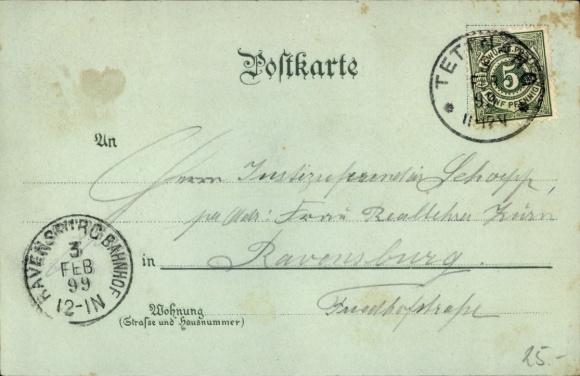 Postkarte
TETTNANG
99
11-12V
5
FÜNF PFENNIG
An
Herrn Justizreferendär Schopf,
pr Adr: Frau Reallehrer Zürn
in Ravensburg.
RAVENSBURG BAHNHOF
3
FEB
99
12-1N
Wohnung
(Strasse und Hausnummer)
Friedhofstraße
25.-